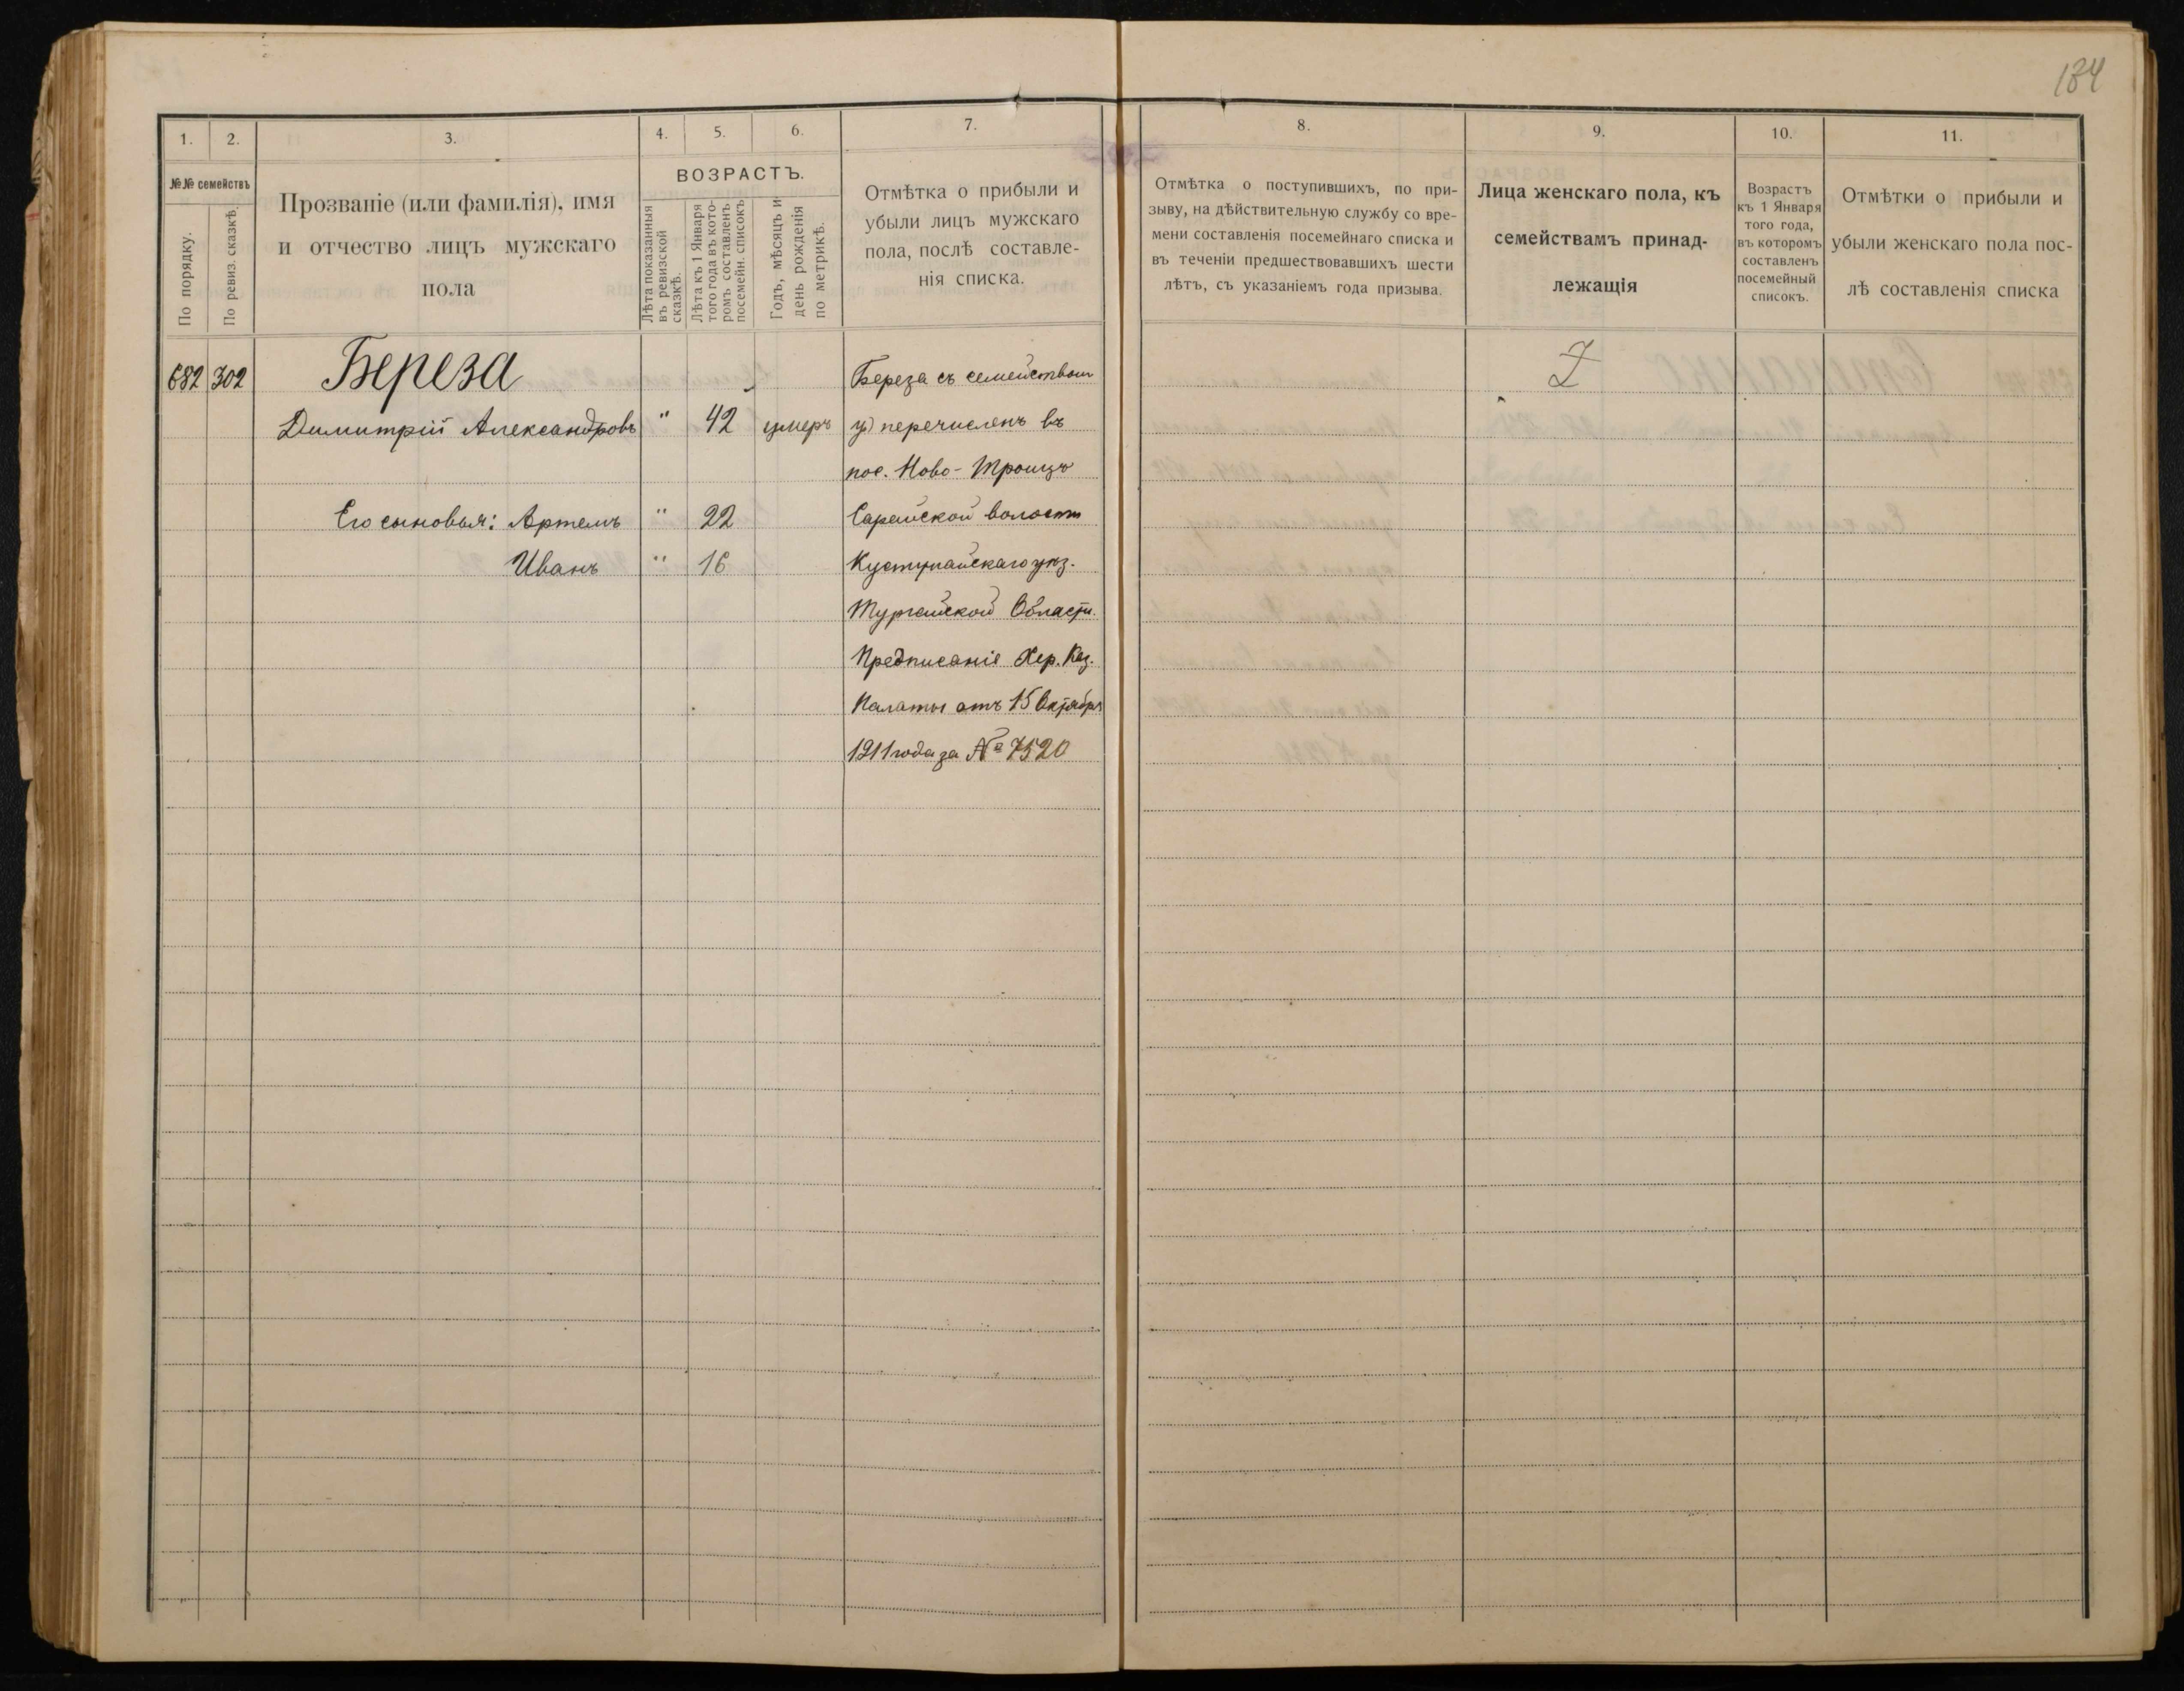 184
1.
2.
3.
4.
5.
6.
7.
8.
9.
10.
11.
№№ семействъ
По порядку.
По ревиз. сказкѣ.
Прозваніе (или фамилія), имя
и отчество лицъ мужскаго
пола
ВОЗРАСТЪ.
Лѣта показанныя
въ ревизской
сказкѣ.
Лѣта къ 1 Января
того года въ кото-
ромъ составленъ
посемейн. списокъ
Годъ, мѣсяцъ и
день рожденія
по метрикѣ.
Отмѣтка о прибыли и
убыли лицъ мужскаго
пола, послѣ составле-
нія списка.
Отмѣтка о поступившихъ, по при-
зыву, на дѣйствительную службу со вре-
мени составленія посемейнаго списка и
въ теченіи предшествовавшихъ шести
лѣтъ, съ указаніемъ года призыва.
Лица женскаго пола, къ
семействамъ принад-
лежащія
Возрастъ
къ 1 Января
того года,
въ которомъ
составленъ
посемейный
списокъ.
Отмѣтки о прибыли и
убыли женскаго пола пос-
лѣ составленія списка
682 302 Береза Береза съ семействомъ
Димитрій Александровъ " 42 умеръ перечисленъ въ
пос. Ново-Троицъ
Его сыновья: Артемъ " 22 Сарайской волости
Иванъ " 16 Кустунайскаго уѣз.
Тургайской Области.
Предписаніе Хер. Каз.
Палаты отъ 15 Октября
1911 года за № 7520